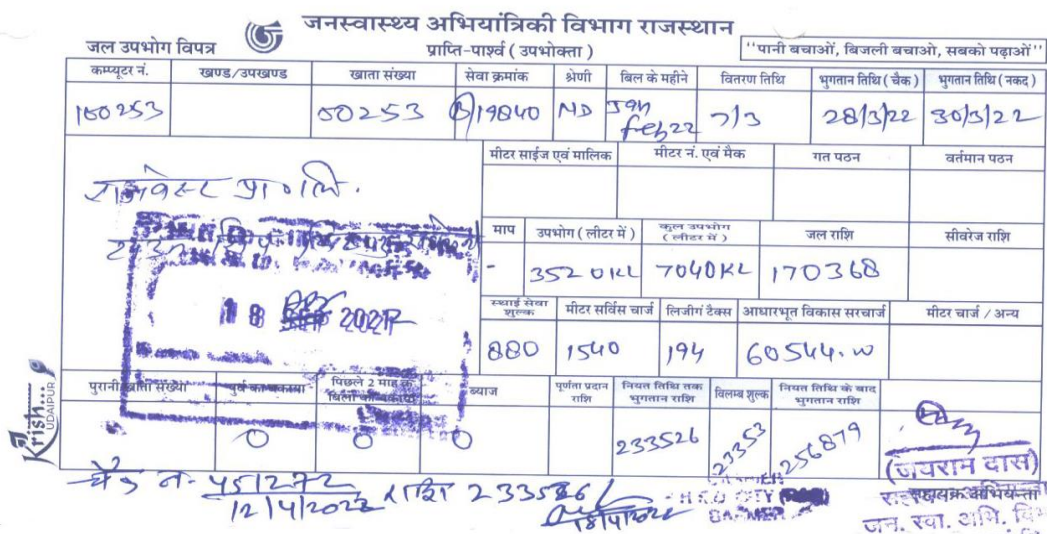 जनस्वास्थ्य अभियांत्रिकी विभाग राजस्थान
जल उपभोग विपत्र
प्राप्ति-पार्श्व ( उपभोक्ता )
''पानी बचाओं, बिजली बचाओ, सबको पढ़ाओं''
कम्प्यूटर नं. खण्ड/उपखण्ड खाता संख्या सेवा क्रमांक श्रेणी बिल के महीने वितरण तिथि भुगतान तिथि ( चैक ) भुगतान तिथि ( नकद )
100253 00253 19840 ND Jan Feb 22 7/3 28/3/22 30/3/22
मीटर साईज एवं मालिक मीटर नं. एवं मैक गत पठन वर्तमान पठन
राजवेस्ट प्रा० लि.
माप उपभोग ( लीटर में ) कुल उपभोग ( लीटर में ) जल राशि सीवरेज राशि
- 3520KL 7040KL 170368
स्थाई सेवा शुल्क मीटर सर्विस चार्ज लिजीगं टैक्स आधारभूत विकास सरचार्ज मीटर चार्ज / अन्य
18 202
880 1540 194 60544.00
पुरानी खाता संख्या पूर्व का बकाया पिछले 2 माह के बिलों का बकाया ब्याज पूर्णता प्रदान राशि नियत तिथि तक भुगतान राशि विलम्ब शुल्क नियत तिथि के बाद भुगतान राशि
0 0 0 233526 23353 256879
(जयराम दास)
सहायक अभियन्ता
जन. स्वा. अभि.
चैक नं. 451272 राशि 233526/
12/4/2022
18/4/2022
CITY
BARMER
Krish...
UDAIPUR